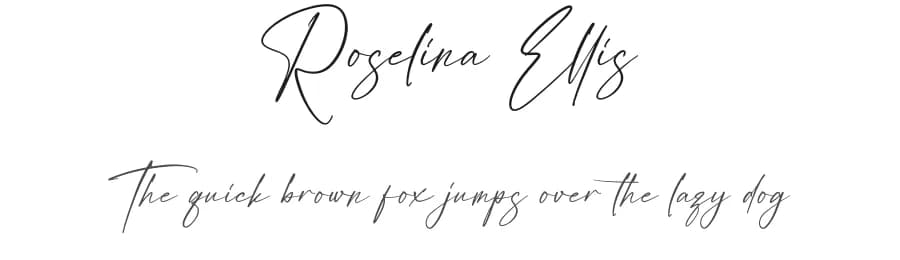 Roselina Ellis
The quick brown fox jumps over the lazy dog